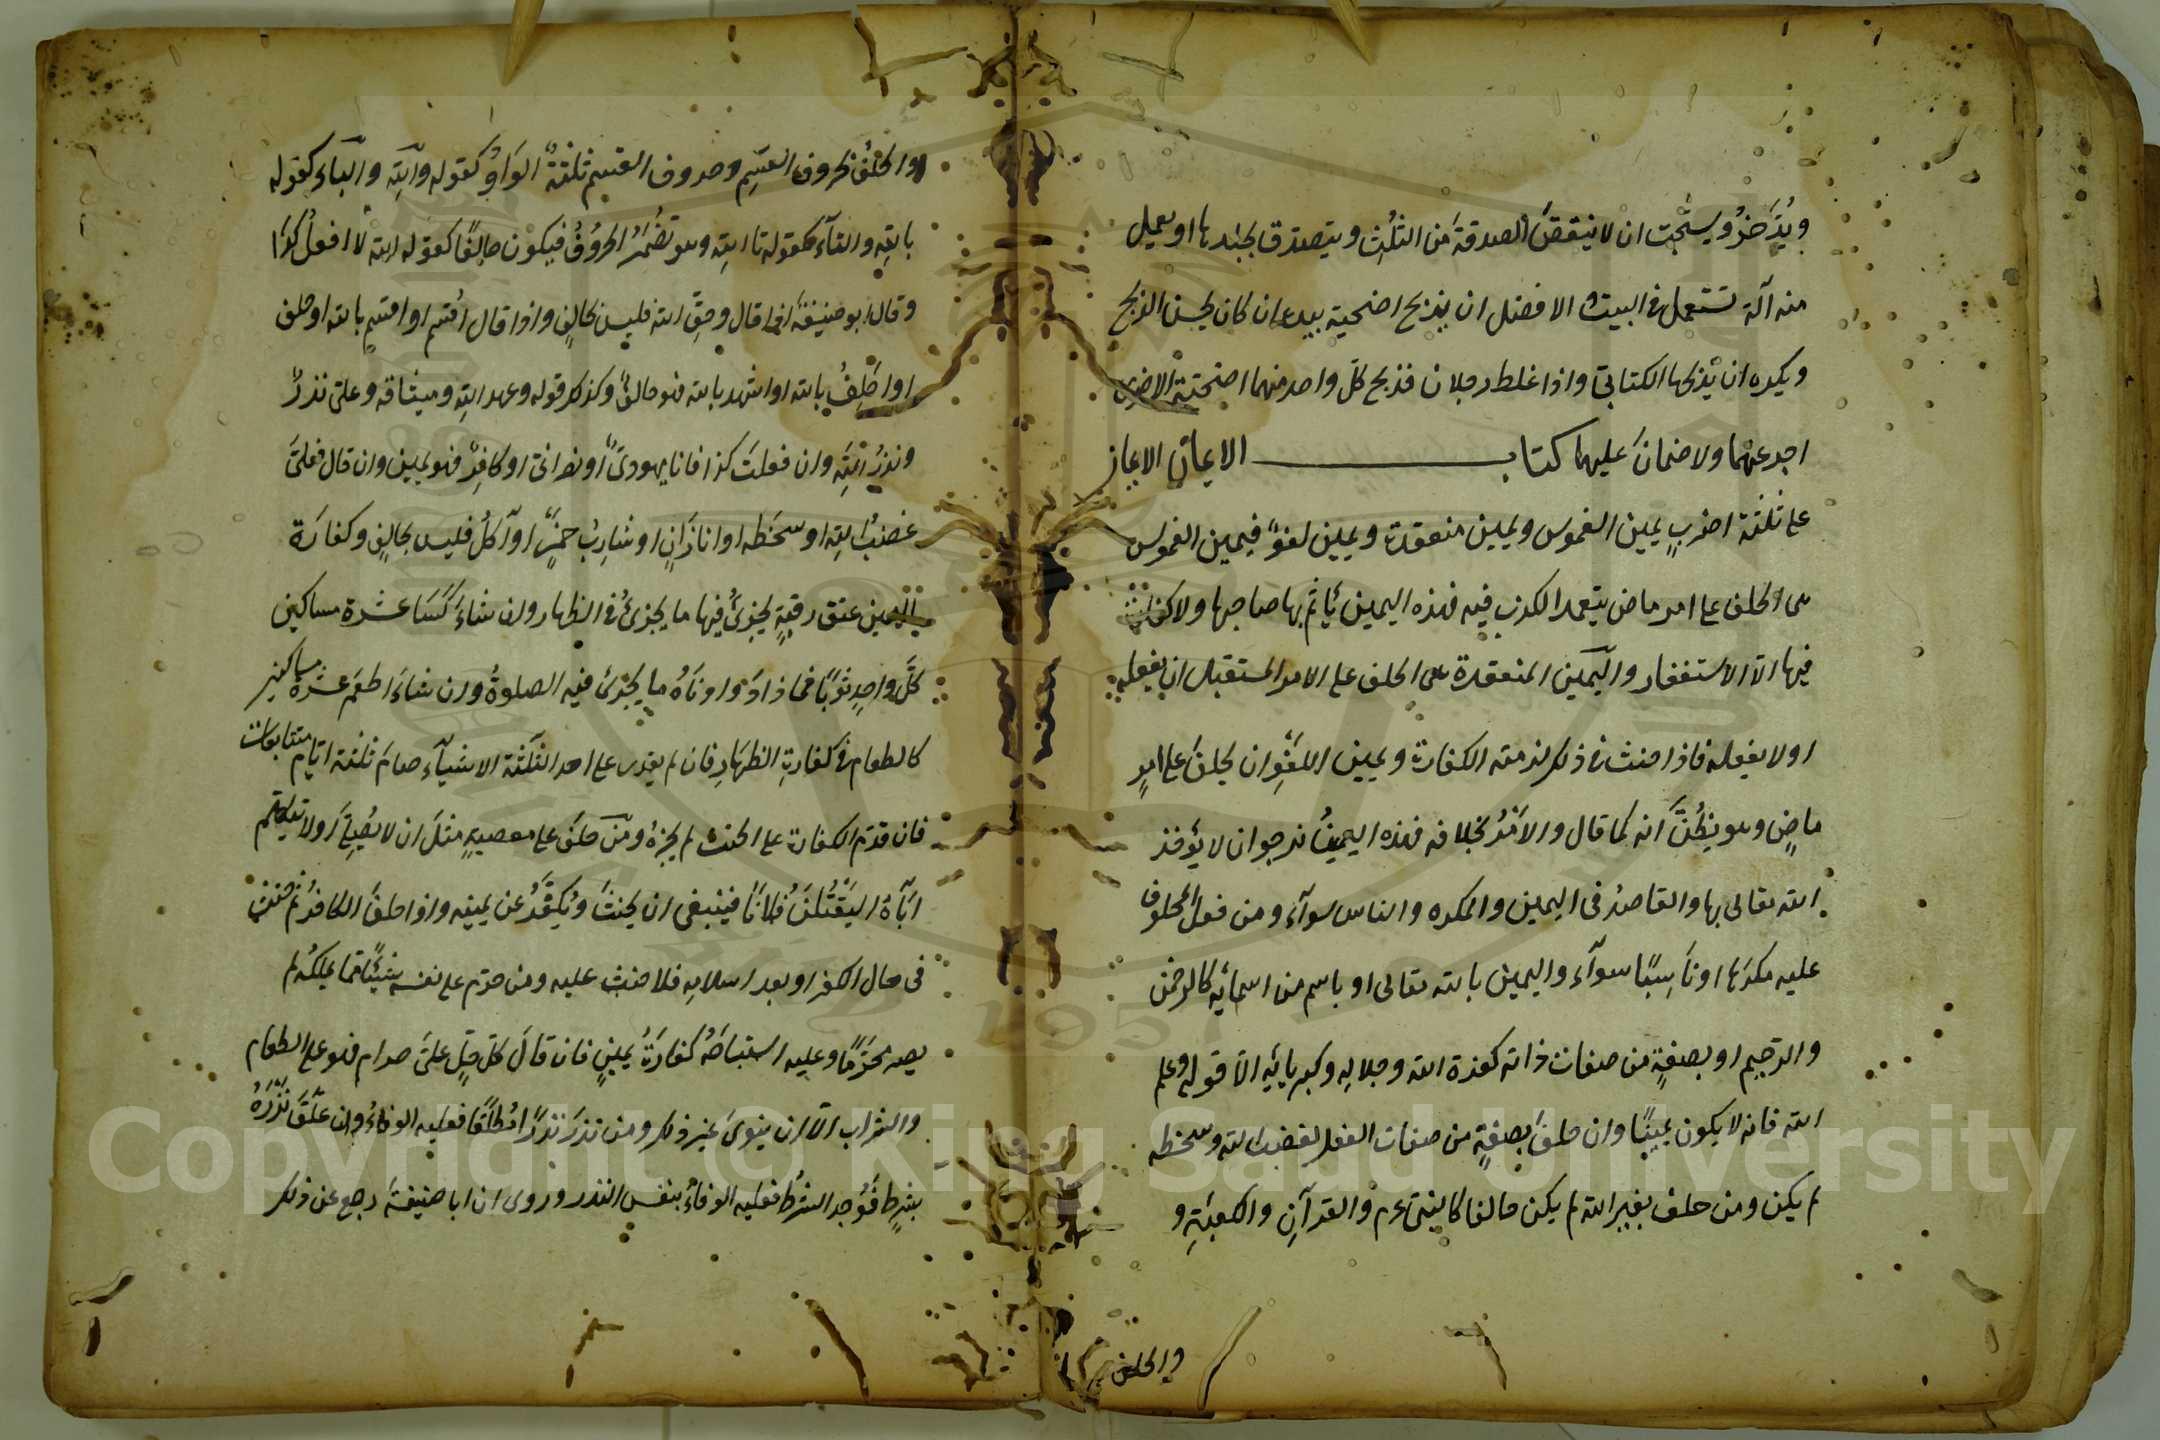 ويُدَّخرُ ويستحبّ ان لا ينقصَ الصدقةَ من الثلُثِ ويتصدّق بجلدها او يعمل
منه آلة تستعمل فى البيت الافضل ان يذبح اضحيته بيده ان كان يحسن الذبح
ويكره ان يذبحها الكتابىّ واذا غلط رجلان فذبح كلّ واحد منهما اضحيّة الاخر
اجزء عنهما ولا ضمانَ عليهما كتاب الايمان الايمان
على ثلثة اضربٍ يمين الغموس ويمين منعقدة ويمين لغوٌ فيمين الغموس
هى الحلف على امر ماض يتعمد الكذب فيه فهذه اليمين يأثم بها صاحبها ولا كفارة
فيها الّا الاستغفار واليمين المنعقدة هى الحلف على الامر المستقبل ان يفعله
او لا يفعله فاذا حنث فى ذلك لزمته الكفارة ويمين اللغوِ ان يحلف على امرٍ
ماضٍ وهو يظُنّ انه كما قال والامرُ بخلافه فهذه اليمينُ نرجو ان لا يؤخذ
الله تعالى بها والقاصدُ فى اليمين والمكره والناس سوآء ومن فعل المحلوف
عليه مكرَها او ناسِيًا سوآء واليمين بالله تعالى او باسم من اسمائه كالرحمن
والرحيم او بصفةٍ من صفات ذاته كعزة الله وجلاله وكبريائه الّا قوله وعلم
الله فانه لا يكون يمينًا وان حلفَ بصفةٍ من صفات الفعل لغضب الله وسخطه
لم يكن ومن حلف بغير الله لم يكن حالفا كالنبىّ عم والقرآنِ والكعبةِ و
والحلف
والحلفُ بحروف القسم وحروف القسم ثلثةٌ الوَاوُ كقوله واللهِ والبآء كقوله
باللهِ والتآء كقوله تا اللهِ وهو تُضمَرُ الحروُفُ فيكون حالفًا كقوله الله لا افعلُ كذا
وقال ابو حنيفةَ اذا قال وحقِّ الله فليس بحالفٍ واذا قال اُقسم او اقسم بالله او حلف
او احلِفُ بالله او اشهد بالله فهو حالفٌ وكذلك قوله وعهد اللهِ وميثاقه وعلىّ نذرٌ
ونذرُ اللهِ وان فعلتَ كذا فانا يهودىّ او نصرانىّ او كافِرٌ فهو يمين وان قال فعلىّ
غضبُ الله او سخطه او انا زَانٍ او شارِبُ خمرٍ او آكلُ فليس بحالفٍ وكفارَة
اليمين عتق رقبةٍ يجزئُ فيها ما يجزئُ فى الظهار وان شاءَ كَسَا عشرة مساكين
كلَّ واحِدٍ ثوبًا فما زادَ وادناهُ ما يجزئ فيه الصلوةُ وان شاءَ اطعَمَ عشرة مساكين
كالطعام فى كفارة الظهَارِ فان لم يقدر على احد الثلثة الاشيآء صامَ ثلثة ايّام متتابعات
فان قدّم الكفارة على الحنث لم يجزهُ ومن حلفَ على معصيةٍ مثلَ ان لا يُصلِّىَ او لا يتكلّم
ابَاهُ او ليَقْتُلنَّ فُلانًا فينبغى ان يحنثَ ويُكفّرُ عن يمينه واذا حلفَ الكافرُ ثم حنث
فى حال الكفر او بعد اسلامِه فلا حنث عليه ومن حرّم على نفسه شيئًا مما يملكهُ لم
يصر محرَّمًا وعليه استباحَهُ كفارَةُ يمينٍ فان قالَ كلّ حلٍّ علىّ حرام فهو على الطعام
والشراب الّا ان ينوىَ غير ذلك ومن نذرَ نذرًا مُطلقًا فعليه الوفاءُ وان علّقَ نذرَهُ
بشرطٍ فوُجد الشرطُ فعليه الوفاءُ بنفس النذر وروى ان ابا حنيفةَ رجع عن ذلك
Copyright © King Saud University
1957